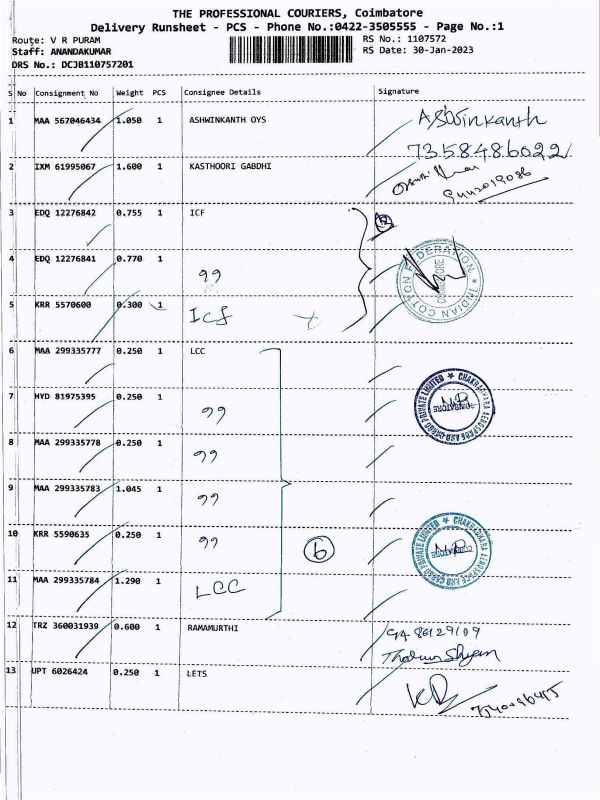 THE PROFESSIONAL COURIERS, Coimbatore
Delivery Runsheet - PCS - Phone No.:0422-3505555 - Page No.:1
Route: V R PURAM RS No.: 1107572
Staff: ANANDAKUMAR RS Date: 30-Jan-2023
DRS No.: DCJB110757201
S No Consignment No Weight PCS Consignee Details Signature
1 MAA 567046434 1.050 1 ASHWINKANTH OYS Ashwinkanth
7358486022
2 IXM 61995067 1.600 1 KASTHOORI GABDHI
3 EDQ 12276842 0.755 1 ICF
4 EDQ 12276841 0.770 1 99
INDIAN COTTON FEDERATION
COIMBATORE
5 KRR 5570600 0.300 1 Icf
6 MAA 299335777 0.250 1 LCC
7 HYD 81975395 0.250 1 99
CHAKRADHARA AEROSPACE AND CARGO PRIVATE LIMITED
COIMBATORE
8 MAA 299335778 0.250 1 99
9 MAA 299335783 1.045 1 99
10 KRR 5590635 0.250 1 99 6
CHAKRADHARA AEROSPACE AND CARGO PRIVATE LIMITED
COIMBATORE
11 MAA 299335784 1.290 1 LCC
12 TRZ 360031939 0.600 1 RAMAMURTHI
13 UPT 6026424 0.250 1 LETS